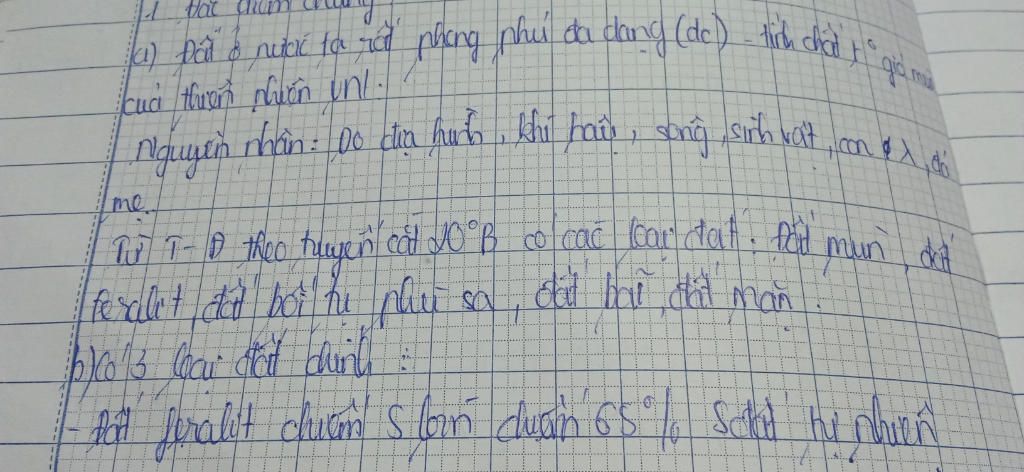 1. Đặc điểm chung
a) Đất ở nước ta rất phong phú đa dạng (dc) - tính chất to gió mùa
của thiên nhiên VN.
Nguyên nhân: Do địa hình, khí hậu, sông, sinh vật, con, đá
mẹ.
Từ T-Đ theo tuyến cắt 20°B có các loại đất: Đất mùn, đất
feralit, đất bồi tụ phù sa, đất bãi, đất mặn.
b) Có 3 loại đất chính:
- Đất feralit chiếm S lớn 65% S đất tự nhiên